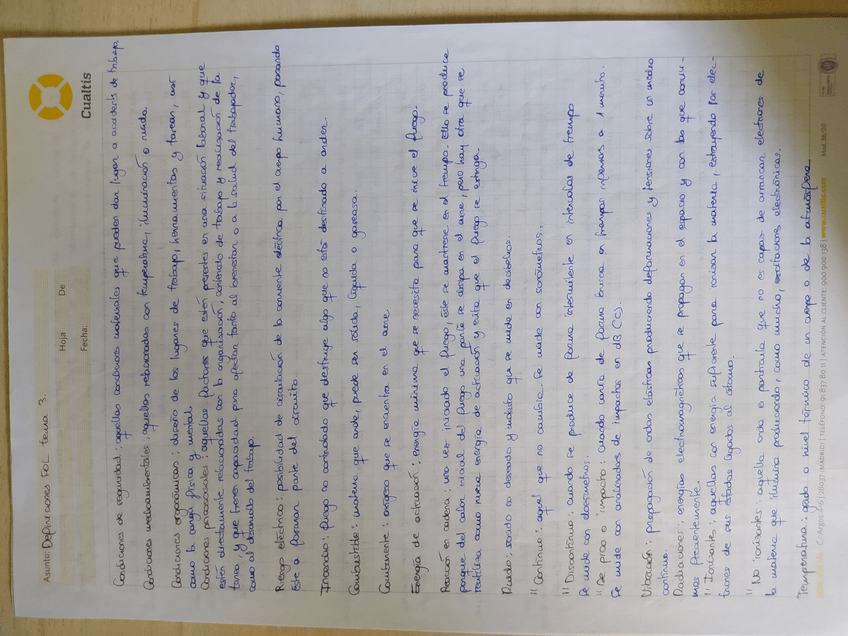 Cualtis
Asunto: Definiciones FOL tema 3.
Hoja De
Fecha:
Condiciones de seguridad: aquellas condiciones materiales que pueden dar lugar a accidents de trabajo
Condiciones medioambientales: aquellas relacionadas con temperatura, iluminación o ruido.
Condiciones ergonómicas: diseño de los lugares de trabajo, herramientas y tareas, así
como la carga física y mental.
Condiciones psicosociales: aquellos factores que están presentes en una situación laboral y que
están directamente relacionados con la organización, contenido de trabajo y realización de la
tarea, y que tienen capacidad para afectar tanto al bienestar o a la salud del trabajador,
como al desarrollo del trabajo.
Riesgo eléctrico: posibilidad de circulación de la corriente eléctrica por el cuerpo humano, pasando
éste a formar parte del circuito.
Incendio: fuego no controlado que destruye algo que no está destinado a arder.
Combustible: materia que arde, puede ser sólida, líquida o gaseosa.
Comburente: oxígeno que se encuentra en el aire.
Energía de activación: energía mínima que se necesita para que se inicie el fuego.
Reacción en cadena: una vez iniciado el fuego, éste se mantiene en el tiempo. Ello se produce
porque del calor inicial del fuego una parte se disipa en el aire, pero hay otra que se
reutiliza como nueva energía de activación y evita que el fuego se extinga.
Ruido: sonido no deseado y molesto que se mide en decibelios.
" Continuo: aquel que no cambia. Se mide con sonómetros.
" Discontinuo: cuando se produce de forma intermitente en intervalos de tiempo
Se mide con dosímetros.
" De pico o impacto: cuando varía de forma brusca en tiempos inferiores a 1 minuto.
Se mide con analizadores de impactos en dB(C).
Vibración: propagación de ondas elásticas produciendo deformaciones y tensiones sobre un medio
continuo.
Radiaciones: energías electromagnéticas que se propagan en el espacio y con las que convivimos
más frecuentemente.
" Ionizante: aquellas con energía suficiente para ionizar la materia, extrayendo los elec-
trones de sus estados ligados al átomo.
" No ionizantes: aquella onda o partícula que no es capaz de arrancar electrones de
la materia que ilumina produciendo, como mucho, excitaciones electrónicas.
Temperatura: grado o nivel térmico de un cuerpo o de la atmósfera.
28037 (MADRID) | TELÉFONO: 91 837 80 11 | ATENCIÓN AL CLIENTE: 900 900 138 | www.cualtis.com